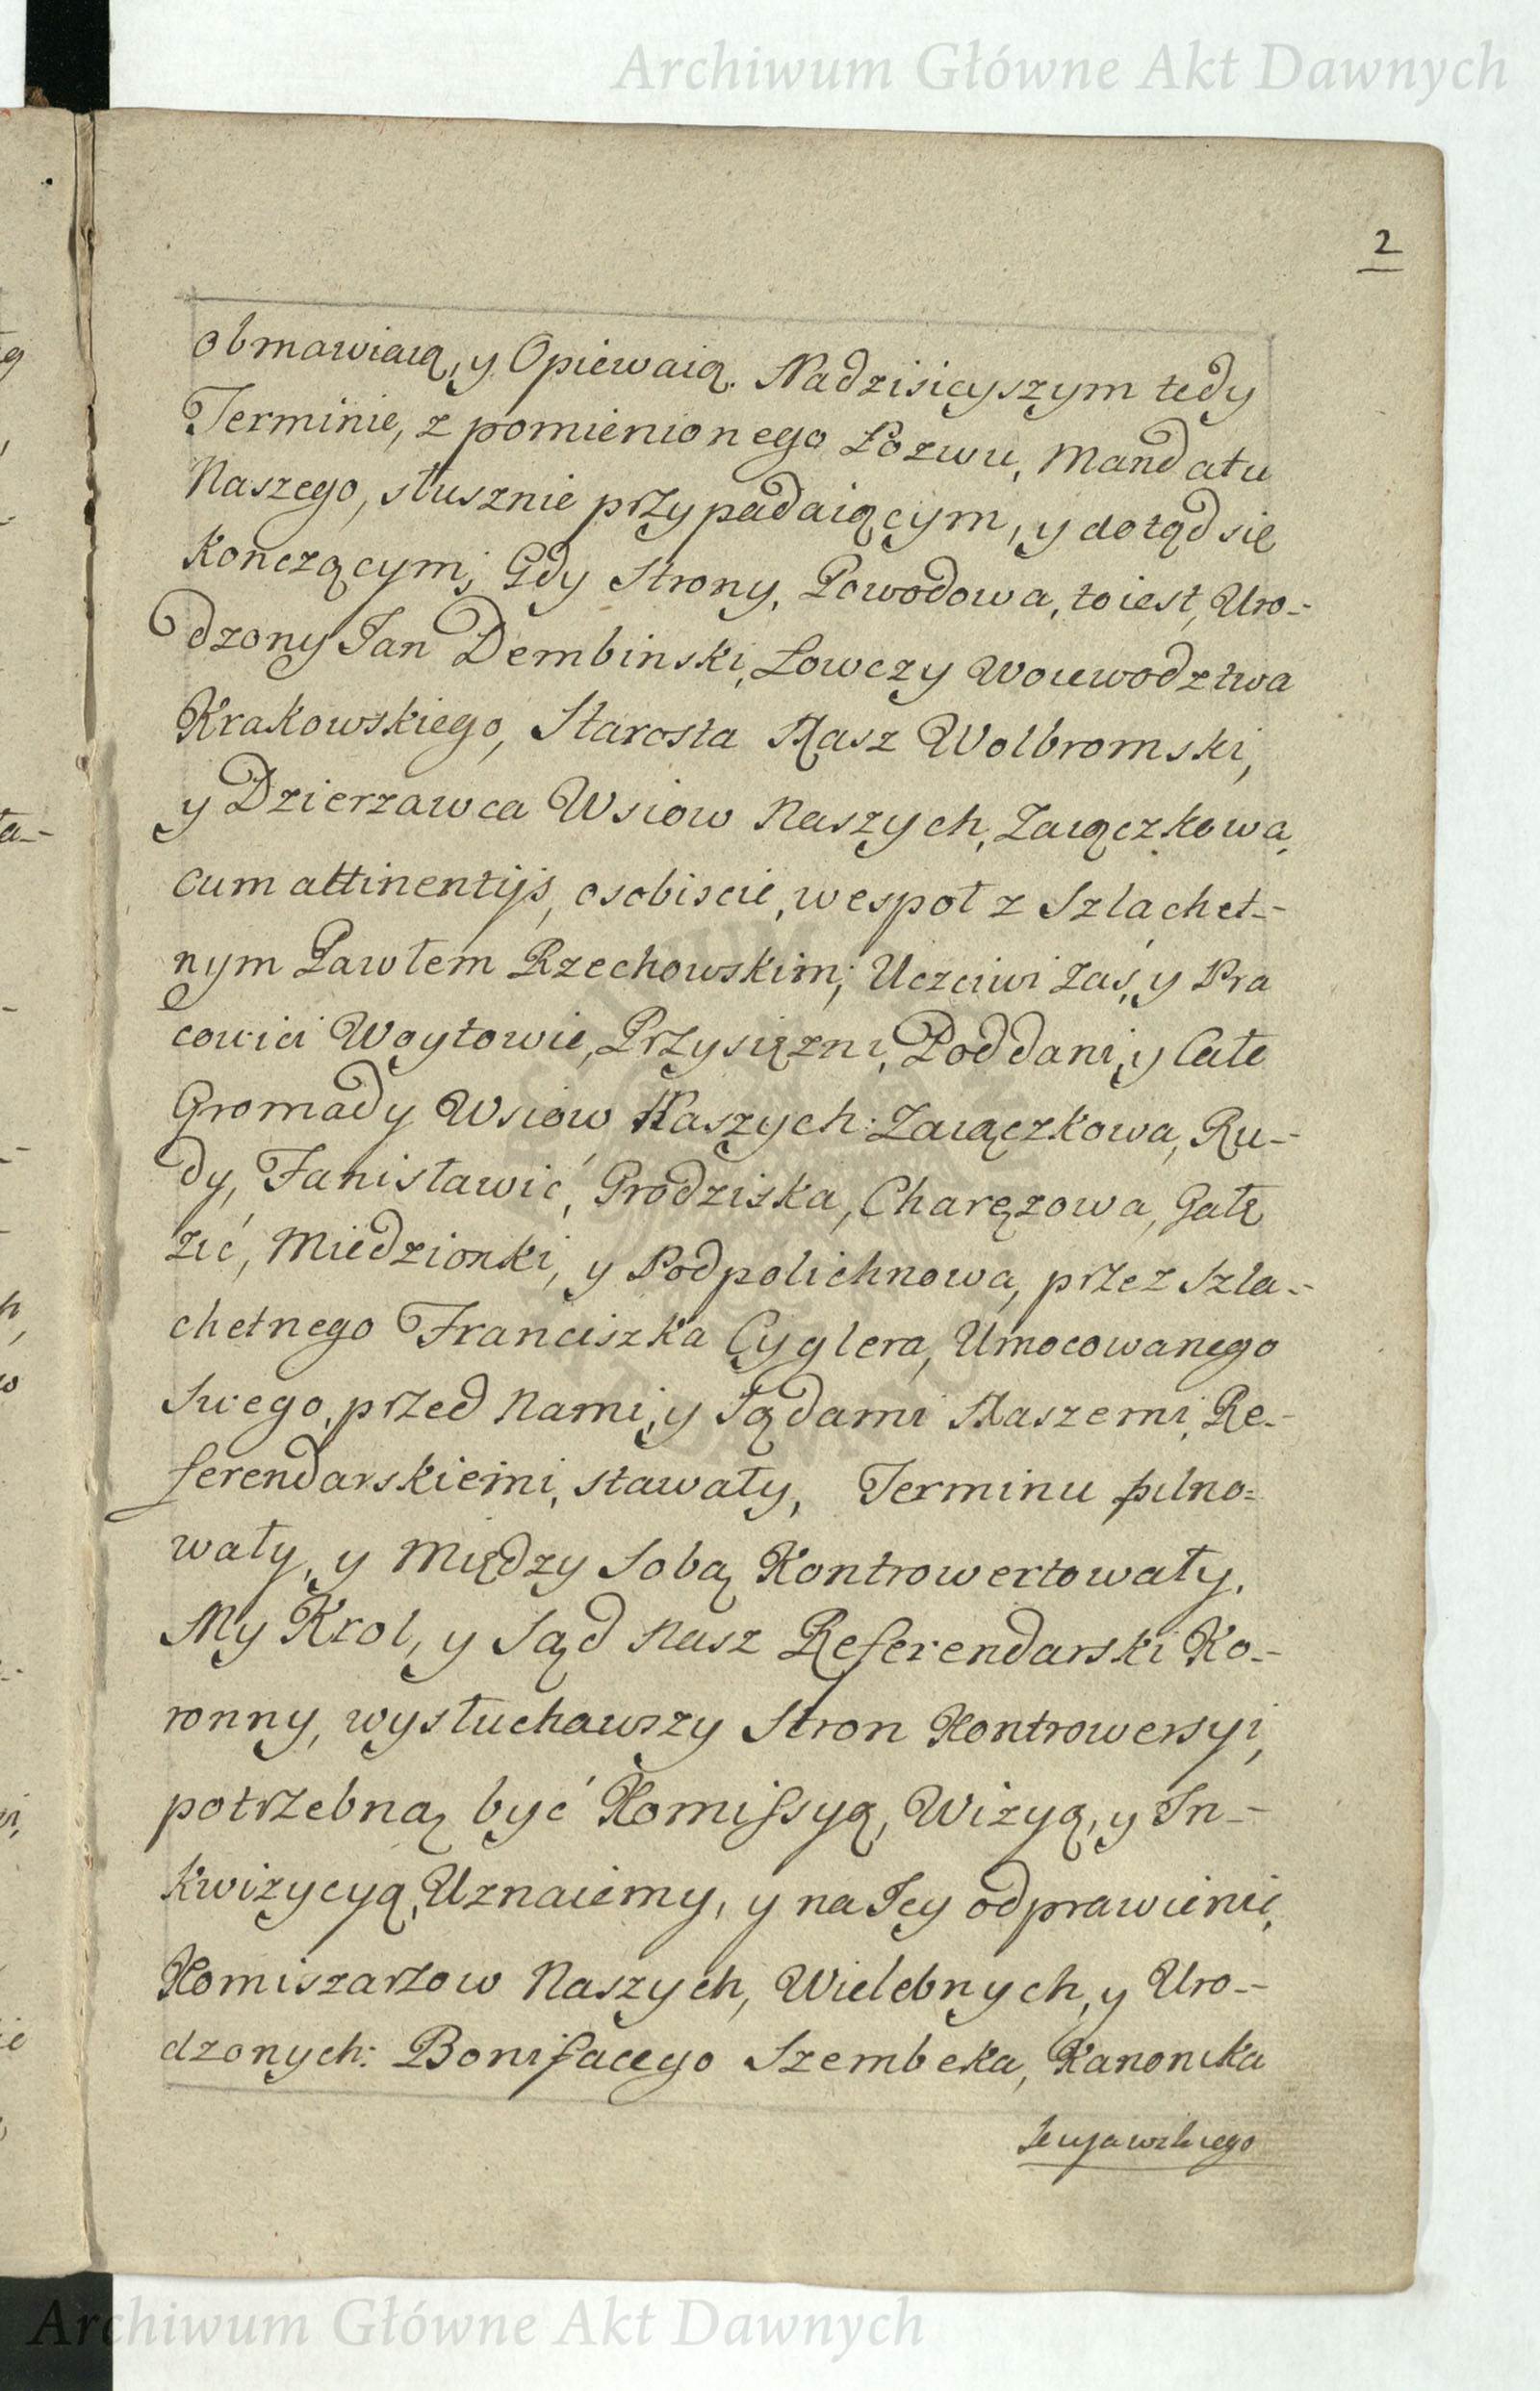 Archiwum Główne Akt Dawnych
2
obmawiaią, y Opiewaią. Nadzisieyszym tedy
Terminie, z pomienionego Pozwu, Mandatu
Naszego, słusznie przypadaiącym, y dotąd się
Konczącym; Gdy Strony, Powodowa, toiest, Uro-
dzony Jan Dembinski, Łowczy Woiewodztwa
Krakowskiego, Starosta Nasz Wolbromski,
y Dzierzawca Wsiow Naszych, Zaiączkowa,
cum attinentijs, osobiscie, wespoł z Szlachet-
nym Pawłem Rzechowskim; Uczciwi Zaś, y Pra
cowici Woytowie, Przysiężni, Poddani, y Całe
Gromady Wsiow Naszych: Zaiączkowa, Ru-
dy, Fanisławic, Grodziska, Charęzowa, Gałę
zić, Miedzionki, y Podpolichnowa, przez Szla-
chetnego Franciszka Cyglera, Umocowanego
Swego, przed Nami, y Sądami Naszemi, Re-
ferendarskiemi, stawały, Terminu pilno-
wały, y Między Sobą Kontrowertowały.
My Krol, y Sąd Nasz Referendarski Ko-
ronny, wysłuchawszy Stron Kontrowersyi,
potrzebną być Komissyą, Wizyą, y In-
kwizycyą, Uznaiemy, y na Jey odprawienie,
Komiszarzow Naszych, Wielebnych, y Uro-
dzonych: Bonifacego Szembeka, Kanonika
Kujawskiego
Archiwum Główne Akt Dawnych